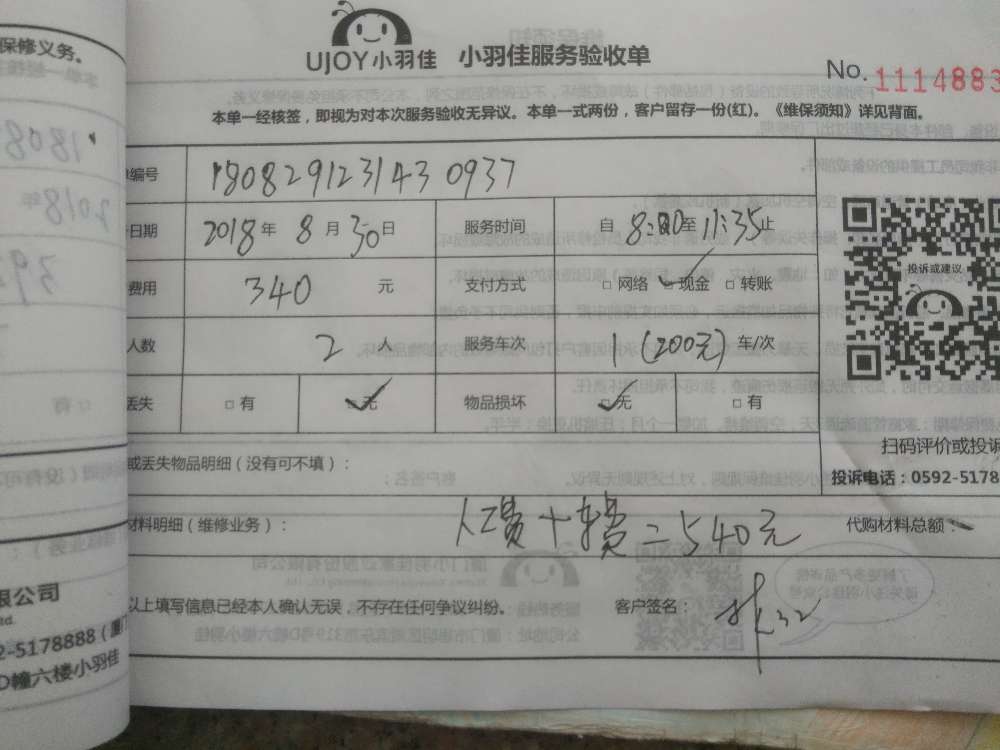 保修义务。
UJOY小羽佳 小羽佳服务验收单
No. 1114883
本单一经核签，即视为对本次服务验收无异议。本单一式两份，客户留存一份(红)。《维保须知》详见背面。
编号 1808291231430937
日期 2018年 8月30日 服务时间 自 8:00至11:35止
费用 340 元 支付方式 □网络 ✓现金 □转账
人数 2 人 服务车次 1 (200元) 车/次
丢失 □有 ☑无 物品损坏 ☑无 □有
投诉或建议
扫码评价或投诉
投诉电话：0592-5178
或丢失物品明细（没有可不填）：
材料明细（维修业务）： 人工费+车费=540元 代购材料总额：
以上填写信息已经本人确认无误，不存在任何争议纠纷。 客户签名：
限公司
2-5178888（厦门
D幢六楼小羽佳